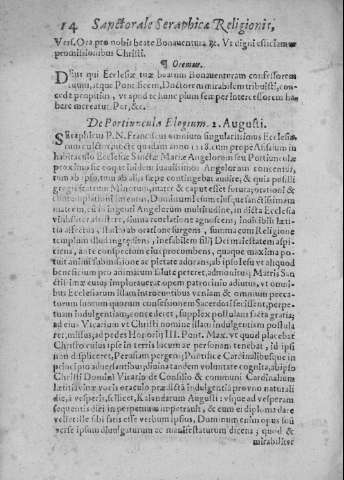 14 Sanctorale Seraphicæ Religionis,
Vers. Ora pro nobis beate Bonauentura &c. Vt digni efficiamur
promissionibus Christi.
¶ Oremus.
Deus qui Ecclesiæ tuæ beatum Bonauenturam confessorem
tuum, atque Pontificem, Doctorem mirabilem tribuisti, con-
cede propitius, vt apud te hunc pium semper Intercessorem ha-
bere mereatur. Per, &c.
De Portiuncula Elogium. 2. Augusti.
Seraphicus P. N. Franciscus omnium
cultor, nocte quadam anni 1218. cum prope Assisium in
habitaculo Ecclesiæ Sanctæ Mariæ Angelorum seu Portiunculæ
proximo
tum ab ipso, tum ab alijs sæpe contingebat audire, & quia
gregis Fratrum Minorum, mater & caput esset futura; orationi &
contemplationi Dominum Iesum eiusque sanctissimam
matrem, cum ingenti Angelorum multitudine, in dicta Ecclesia
reuelatione agnoscens, indicibili lætitia
affectus, statim ab oratione surgens, summa cum Religione
templum illud ingrediens, inefabilem filij Dei maiestatem aspi-
ciens, ante conspectum eius procumbens, quaque maxima po-
tuit animi submissione ac pietate adorans, ab ipso Iesu vt aliquod
beneficium pro animarum salute peteret, admonitus; Matris San-
ctissimæ cuius implorauerat opem patrocinio adiutus, vt omni-
bus Ecclesiarum illam introeuntibus veniam & omnium pecca-
torum suorum quorum confessionem Sacerdoti fecissent, perpe-
tuam indulgentiam, concederet, supplex postulat; facta gratia;
ad eius Vicarium vt Christi nomine illam indulgentiam postula-
ret, missus, ad pedes Honorij III. Pont. Max. vt quod placebat
Christo cuius ipse in terris locum ac personam tenebat, id ipsi
non displiceret, Perusiam pergens; Pontifice Cardinalibusque in
principio aduersantibus, diuina tandem voluntate cognita, ab ipso
Christi Domini Vicario de Consilio & communi Cardinalium
viuæ vocis oraculo prædicta indulgentia pro vno naturali
die, à vesperis, scilicet, Kalendarum Augusti; vsque ad vesperam
sequentis diei in perpetuum impetrauit, & cum ei diploma dare
vellet ille sibi satis esse verbum ipsius, Dominum enim opus suo
verbo ipsum diuulgaturum ac manifestaturum dicens; quod &
mirabiliter